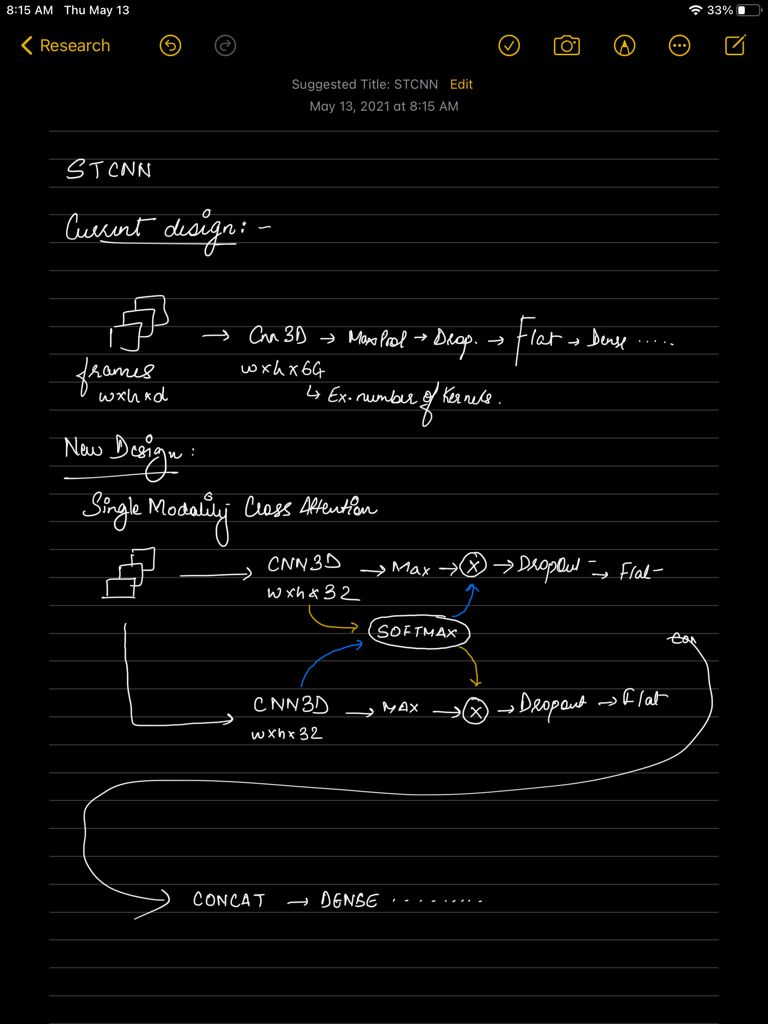 8:15 AM Thu May 13 33%
Research
Suggested Title: STCNN Edit
May 13, 2021 at 8:15 AM
STCNN
Current design: -
frames → Cnn 3D → MaxPool → Drop. → Flat → Dense .....
w×h×d w×h×64
↳ Ex. number of Kernels.
New Design:
Single Modality Cross Attention
CNN3D → Max → ⊗ → Dropout → Flat
w×h×32
SOFTMAX
CNN3D → MAX → ⊗ → Dropout → Flat
w×h×32
CONCAT → DENSE .........